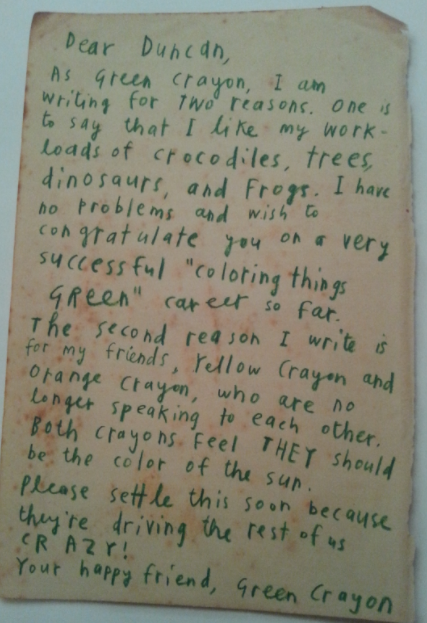 Dear Duncan,
As Green Crayon, I am
writing for TWO reasons. One is
to say that I like my work-
loads of crocodiles, trees,
dinosaurs, and frogs. I have
no problems and wish to
congratulate you on a very
successful "coloring things
GReen" career so far.
The second reason I write is
for my friends, Yellow Crayon and
Orange Crayon, who are no
longer speaking to each other.
Both crayons feel THEY should
be the color of the sun.
Please settle this soon because
they're driving the rest of us
CRAZY!
Your happy friend, Green Crayon